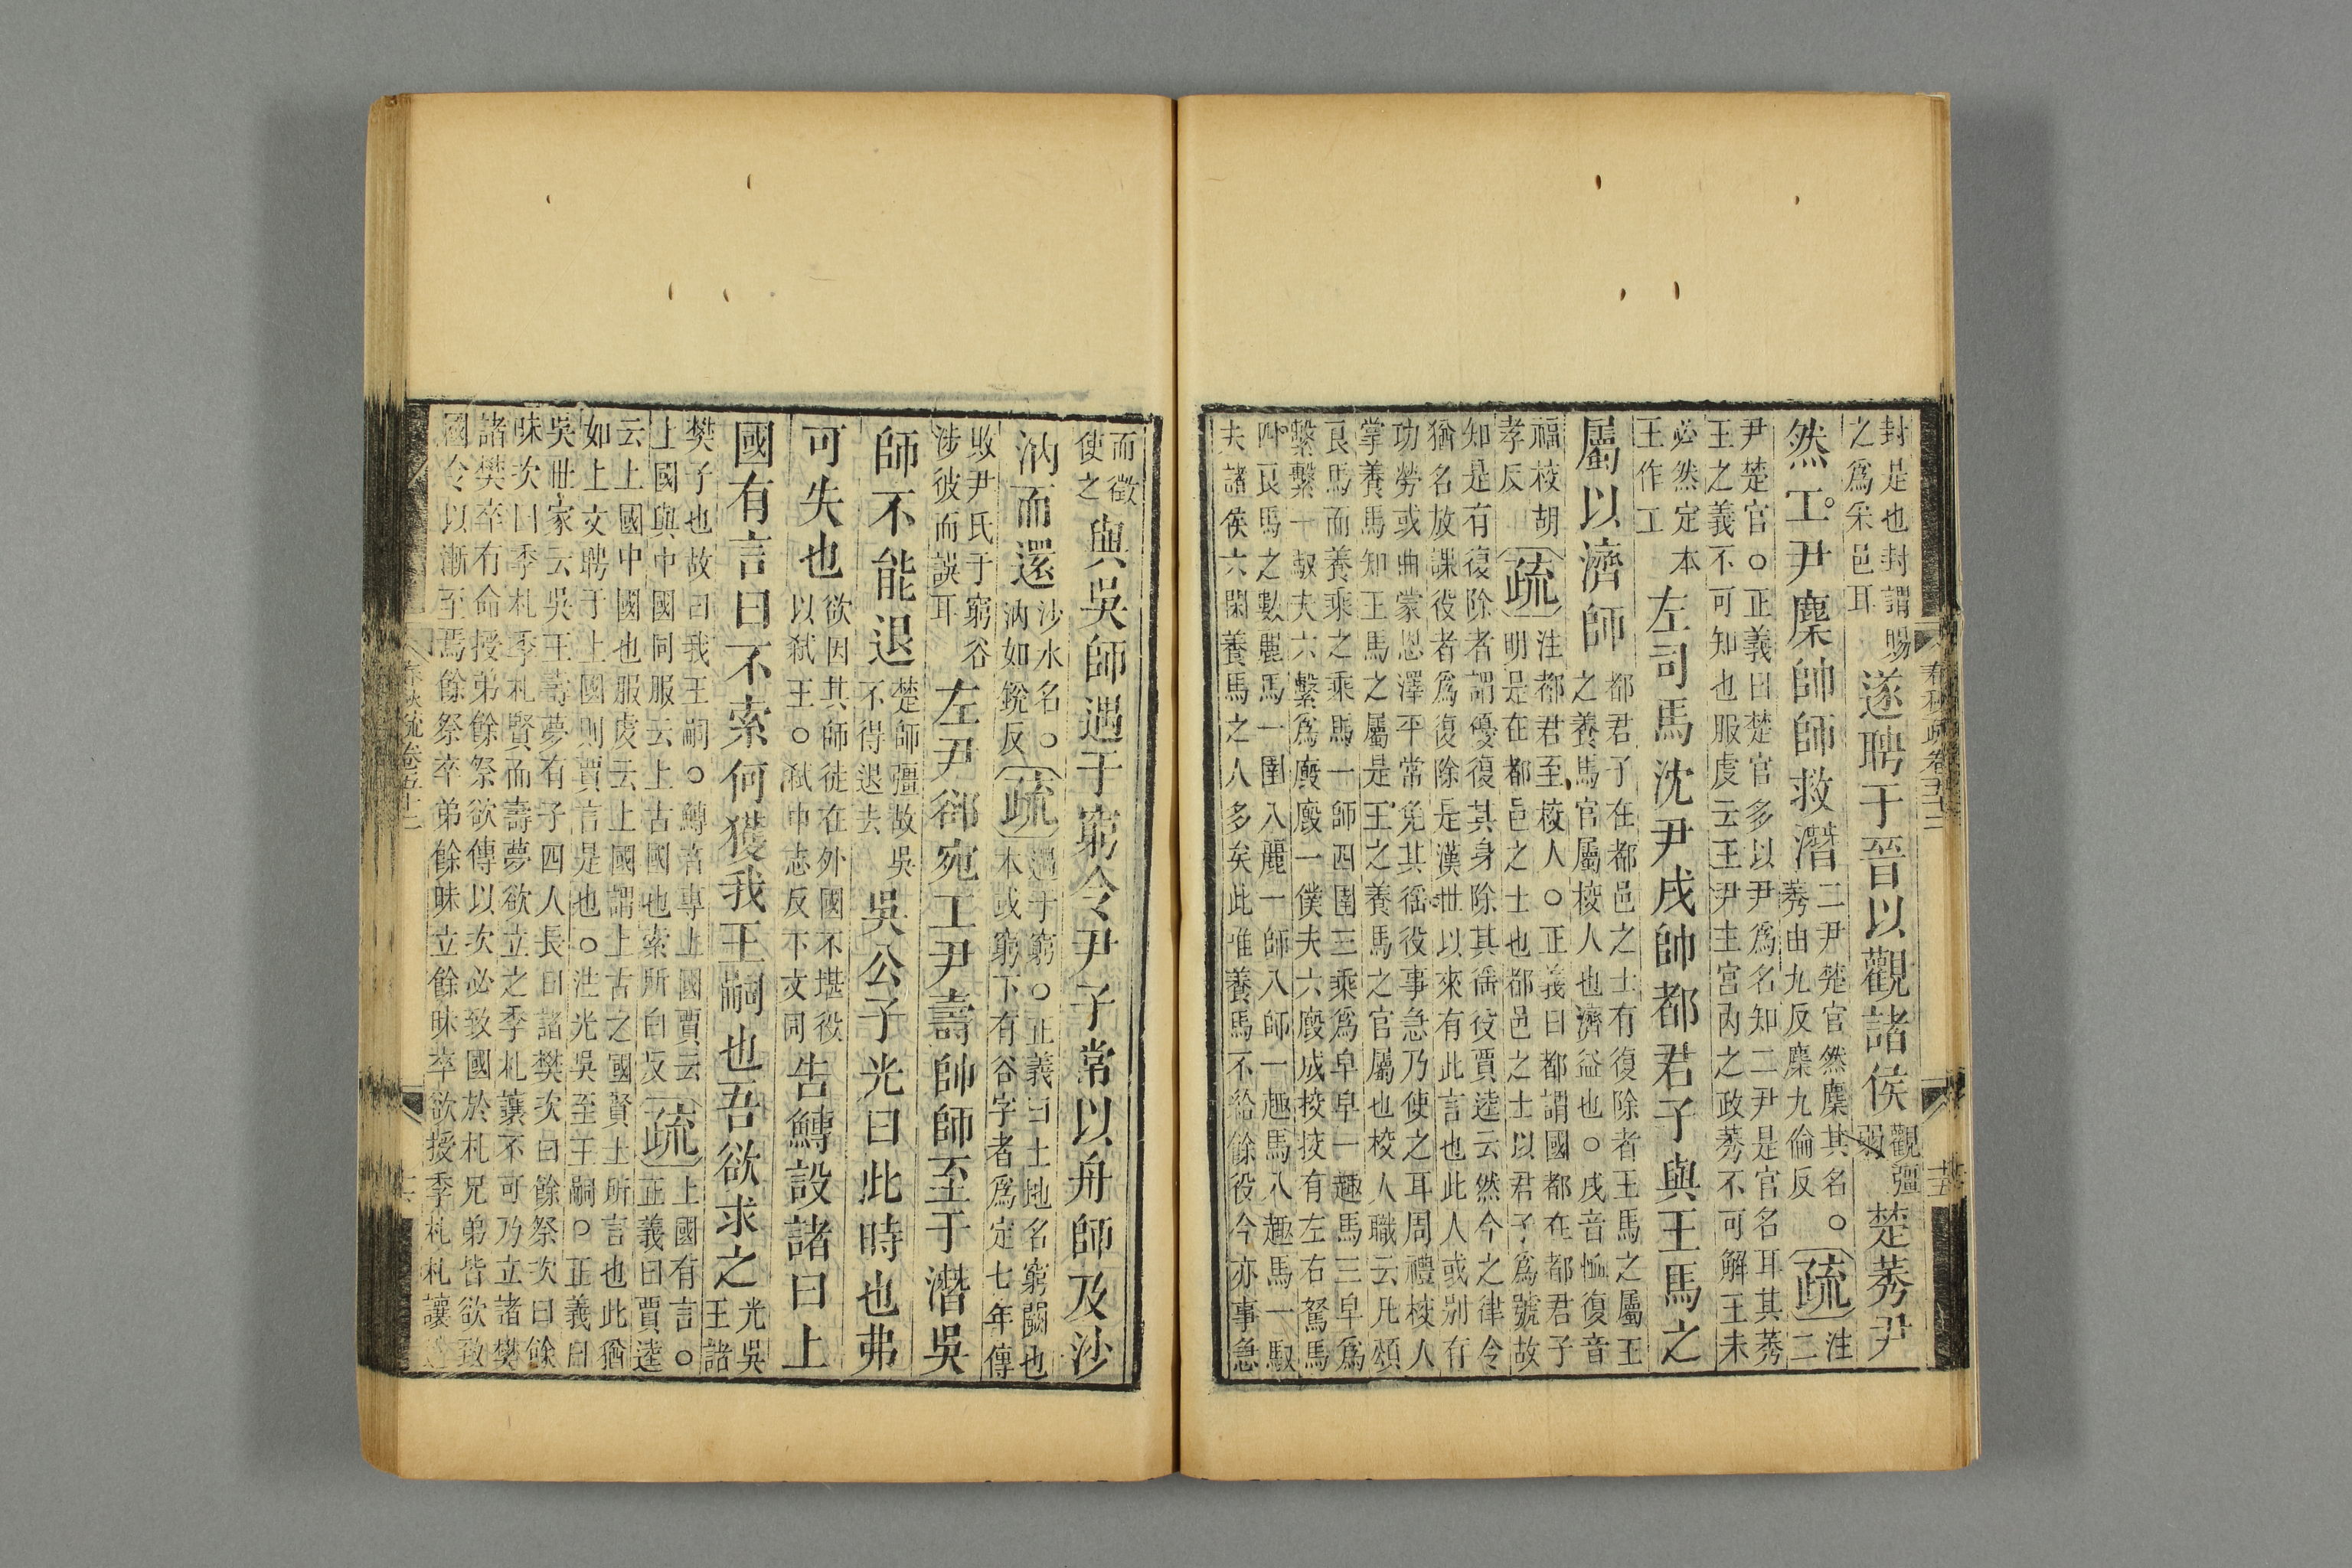 封是也封謂賜
之爲采邑耳
遂聘于晉以觀諸侯
觀彊
弱
楚莠尹
然工尹麇帥師救潛
二尹楚官然麇其名○
莠由九反麇九倫反
疏
注
二
尹楚官○正義曰楚官多以尹爲名知二尹是官名耳其莠
王之義不可知也服虔云王尹主宮內之政莠不可解王未
必然定本
王作工
左司馬沈尹戌帥都君子與王馬之
屬以濟師
都君子在都邑之士有復除者王馬之屬王
之養馬官屬校人也濟益也○戌音恤復音
福校胡
孝反
疏
注都君至校人○正義曰都謂國都在都君子
明是在都邑之士也都邑之士以君子爲號故
知是有復除者謂優復其身除其徭役賈逵云然今之律令
猶名放課役者爲復除是漢世以來有此言也此人或別有
功勞或曲蒙恩澤平常免其徭役事急乃使之耳周禮校人
掌養馬知王馬之屬是王之養馬之官屬也校人職云凡頒
良馬而養乘之乘馬一師四圉三乘爲皁皁一趣馬三皁爲
繫繫一馭夫六繫爲廄廄一僕夫六廄成校校有左右駑馬
三良馬之數麗馬一圉八麗一師八師一趣馬八趣馬一馭
夫諸侯六閑養馬之人多矣此唯養馬不給餘役今亦事急
而徵
使之
與吳師遇于窮令尹子常以舟師及沙
汭而還
沙水名○
汭如銳反
疏
遇于窮○正義曰土地名窮闕也
本或窮下有谷字者爲定七年傳
敗尹氏于窮谷
涉彼而誤耳
左尹郤宛工尹壽帥師至于潛吳
師不能退
楚師彊故吳
不得退去
吳公子光曰此時也弗
可失也
欲因其師徒在外國不堪役
以弒王○弒申志反下文同
告鱄設諸曰上
國有言曰不索何獲我王嗣也吾欲求之
光吳
王諸
樊子也故曰我王嗣○鱄音專上國賈云
上國與中國同服云上古國也索所白反
疏
上國有言○
正義曰賈逵
云上國中國也服虔云上國謂上古之國賢士所言也此猶
如上文聘于上國則賈言是也○注光吳至王嗣○正義曰
吳世家云吳王壽夢有子四人長曰諸樊次曰餘祭次曰餘
昧次曰季札季札賢而壽夢欲立之季札讓不可乃立諸樊
諸樊卒有命授弟餘祭欲傳以次必致國於札兄弟皆欲致
國令以漸至焉餘祭卒弟餘昧立餘昧卒欲授季札札讓
春秋疏卷五十二
十五
春秋疏卷五十二